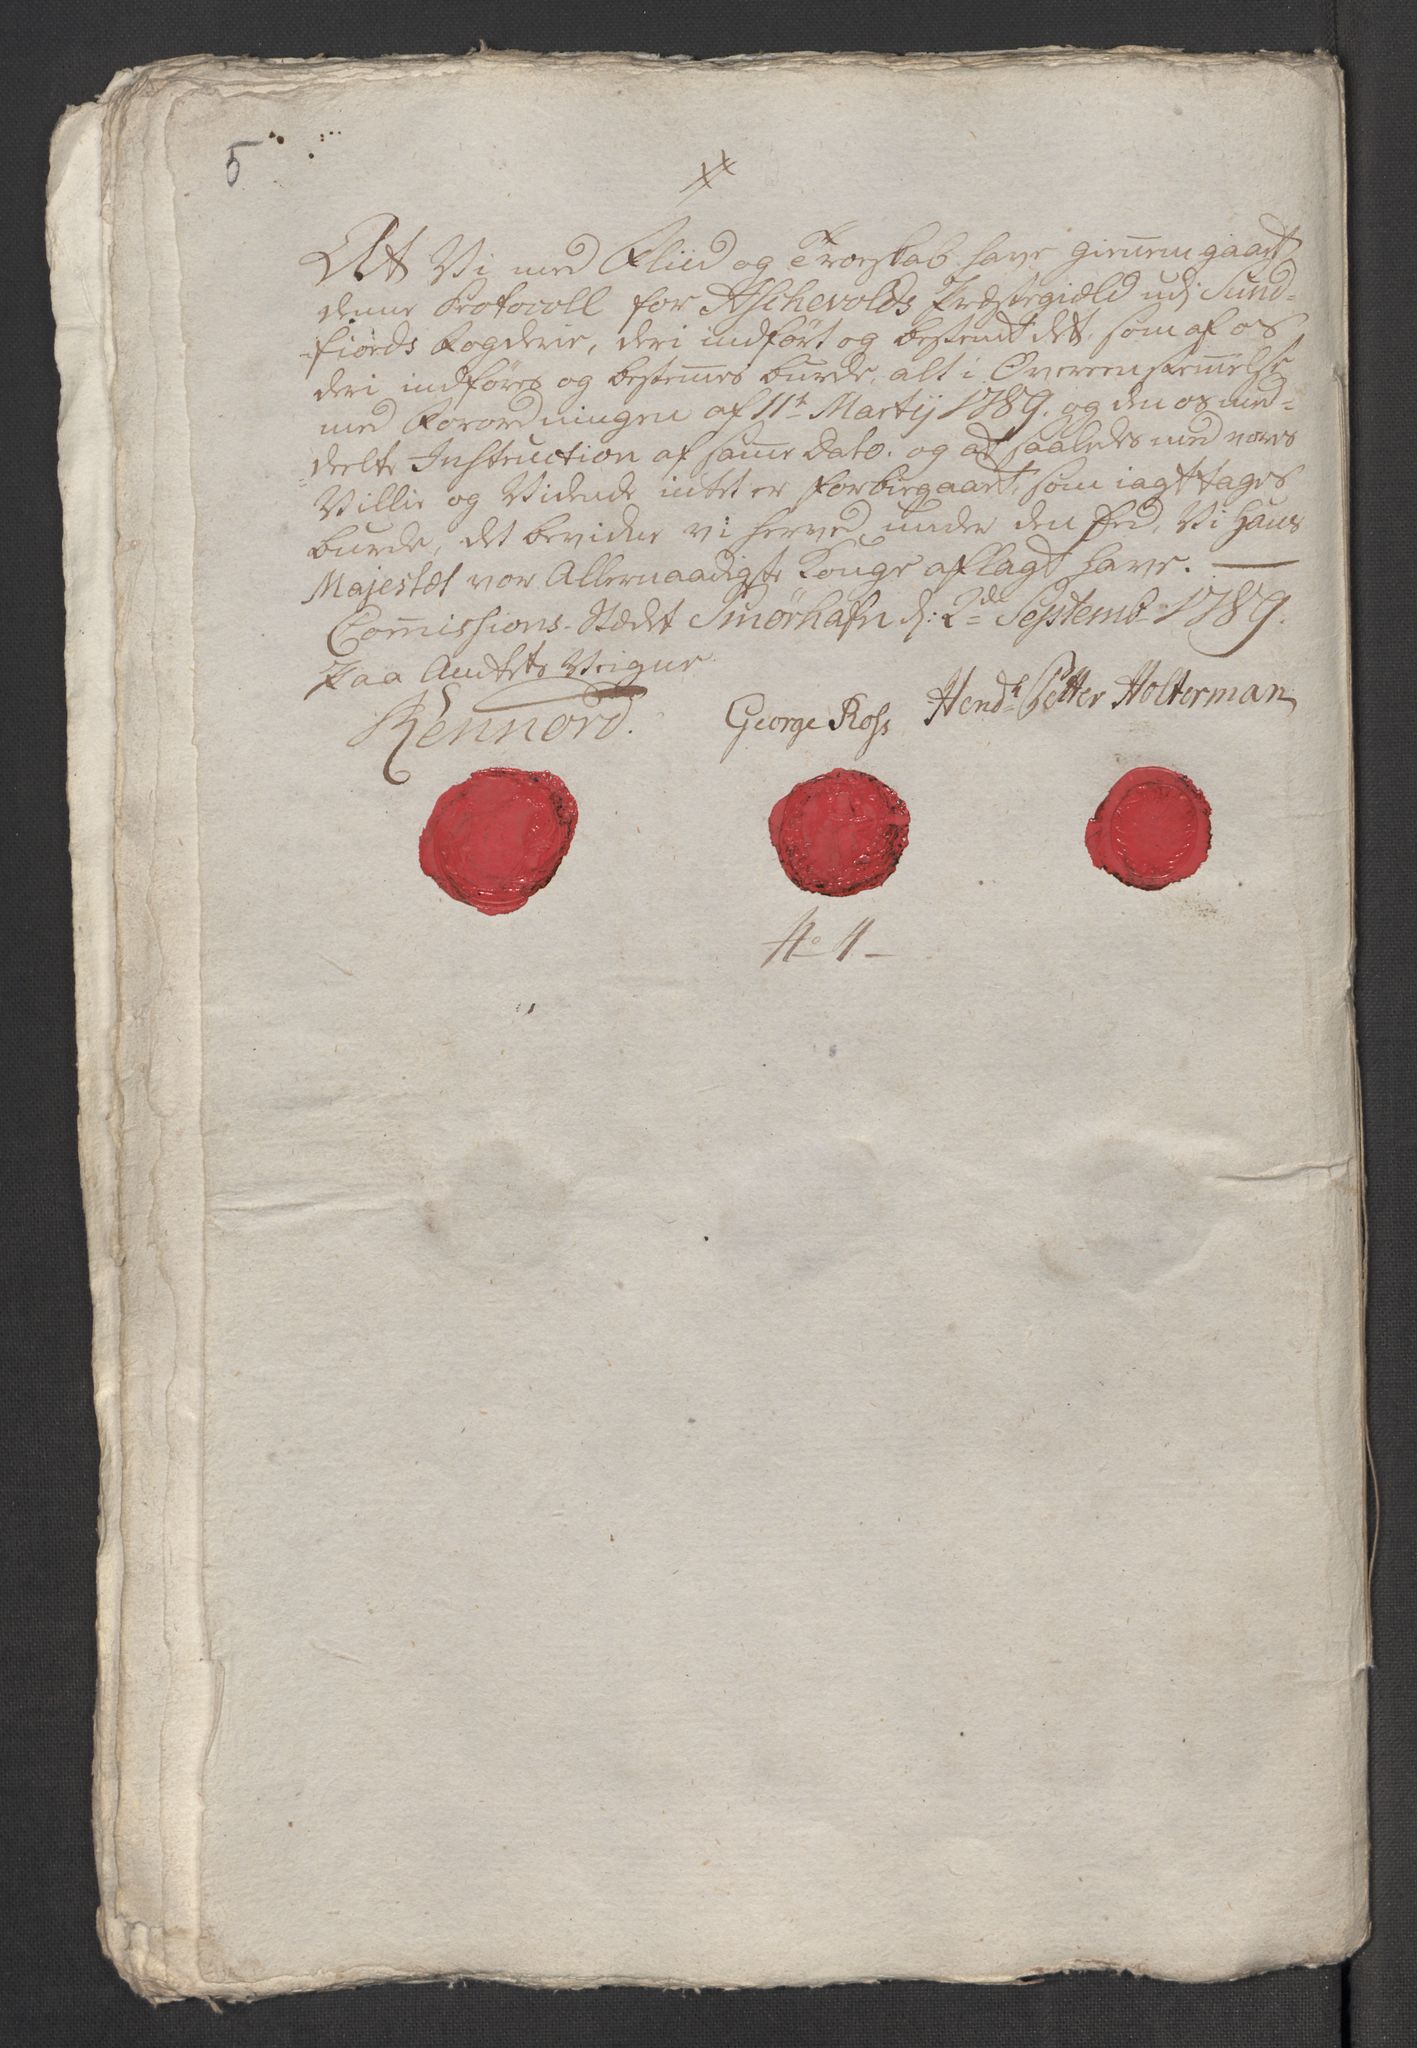 5
At Vi med Fliid og Troeskab have giennemgaaet
denne Protocoll for Aschevolds Præstegiæld udj Sund-
fiords Fogderie, deri indført og bestemt det, som af os
deri indføres og bestemmes burde, alt i Overeenstemmelse
med Forordningen af 11te Martij 1789. og den os med-
deelte Instruction af samme dato. og at saaledes med vores
Villie og Vidende intet er forbiegaaet, som iagttages
burde, det bevidne vi herved under den Eed, Vi Hans
Majestæt vor Allernaadigste Konge aflagt have. —
Commissions-Stædet Smørhafn d: 2de Septemb. 1789.
Paa Amtets Veigne
Kennord. George Ross Hend: Petter Holterman